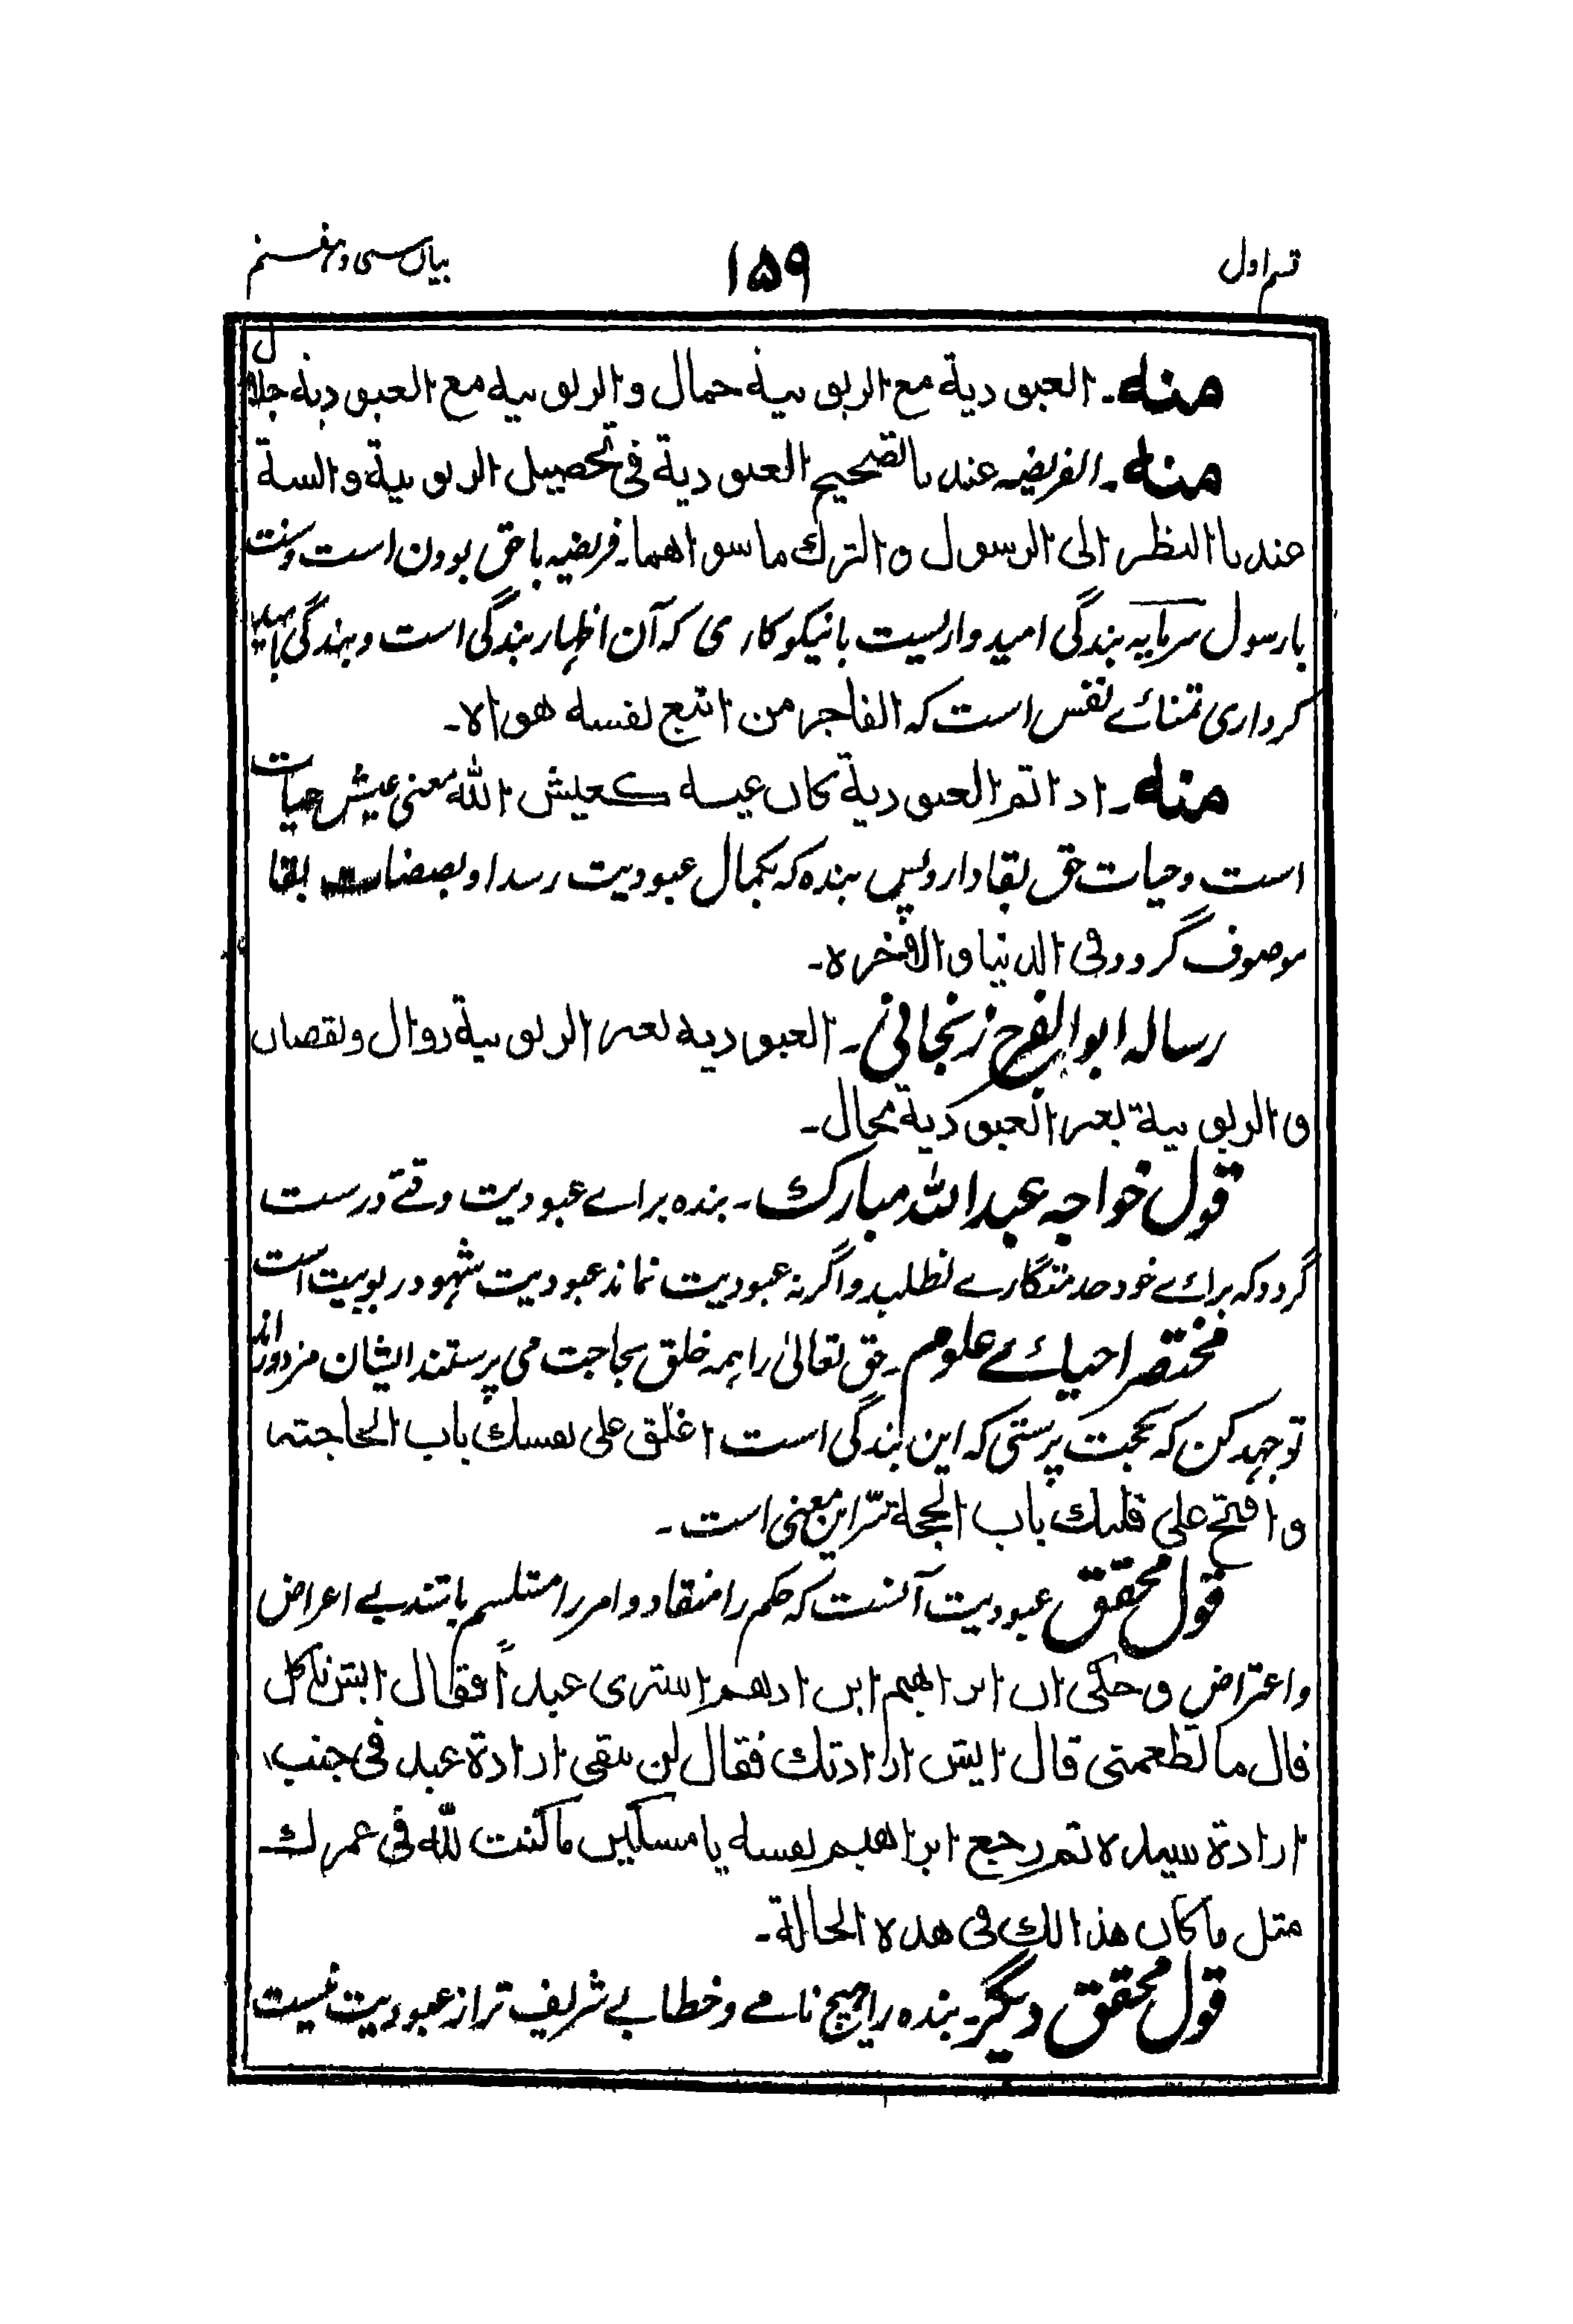 قسم اول
۱۵۹
بیان سی و هفتم
منه۔ العبودیة مع الربوبیة جمال والربوبیة مع العبودیة جلال
منه۔ الفریضه عندنا تصحیح العبودیة فی تحصیل الربوبیة والسنة
عندنا النظر الی الرسول و الترك ما سواهما۔ فریضه با حق بودن است و سنت
با رسول سرمایه بندگی امیدواریست با نیکوکاری که آن اظہار بندگی است و بندگی با
کرداری تمنائے نفس است که الفاجر من اتبع نفسه هواه۔
منه۔ اذا تم العبودیة کان عیشه کعیش الله معنی عیش حیات
است و حیات حق بقا دارد پس بنده که بکمال عبودیت رسد او بصفات بقا
موصوف گردد فی الدنیا و الآخره۔
رساله ابو الفرح زنجانی۔ العبودیه بغیر الربوبیة زوال و نقصان
و الربوبیة بغیر العبودیة محال۔
قول خواجه عبدالله مبارك۔ بنده برائے عبودیت وقتے درست
گردد که برائے خود خدمتگارے نطلبد و اگر نه عبودیت نماند عبودیت شہود ربوبیت است
مختصر احیائے علوم۔ حق تعالیٰ را ہمه خلق بحاجت می پرستند ایشان مزدوراند
تو جہد کن که بمحبت پرستی که این بندگی است اغلق علی نفسك باب الحاجته
و افتح علی قلبك باب المحبة سرّ این معنی است۔
قول محقق عبودیت آنست که حکم را منقاد و امر را مستسلم باشند بے اعراض
و اعتراض و حکی ان ابراهیم ابن ادهم اشتری عبداً فقال ایش تاکل
قال ما تطعمنی قال ایش ارادتك فقال لن یبقی ارادة عبد فی جنب
ارادة سیده ثم رجع ابراهیم نفسه یا مسکین ما کنت لله فی عمرك
مثل ما کان هذا لك فی هذه الحالة۔
قول محقق دیگر۔ بنده را هیچ نامے و خطابے شریف تر از عبودیت نیست